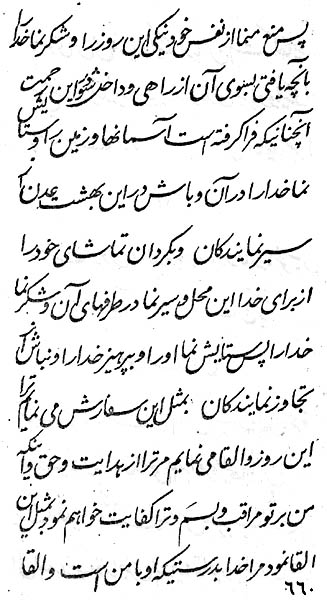 پس منع منما از نفس خود نیکی این روز را و شکر نما خدا را
بآنچه یافتی بسوی آن از راهی و داخل شو در این جمعیت
آنچنانیکه فرا گرفته است آسمانها و زمین را و ستایش
نما خدا را در آن و باش در این بهشت عدن از
سیر نمایندگان و بگردان تماشای خود را
از برای خدا این محل و سیر نما در طرفهای آن و شکر نما
خدا را پس ستایش نما او را و بپرهیز خدا را و نباش از
تجاوز نمایندگان بمثل این سفارش می نمایم ترا
این روز و القا می نمایم مر ترا از هدایت و حق و آنکه
من بر تو مراقب و بسم و ترا کفایت خواهم نمود بمثل این
القا نمود مرا خدا بدرستیکه او با من است و القا
۶۶۰